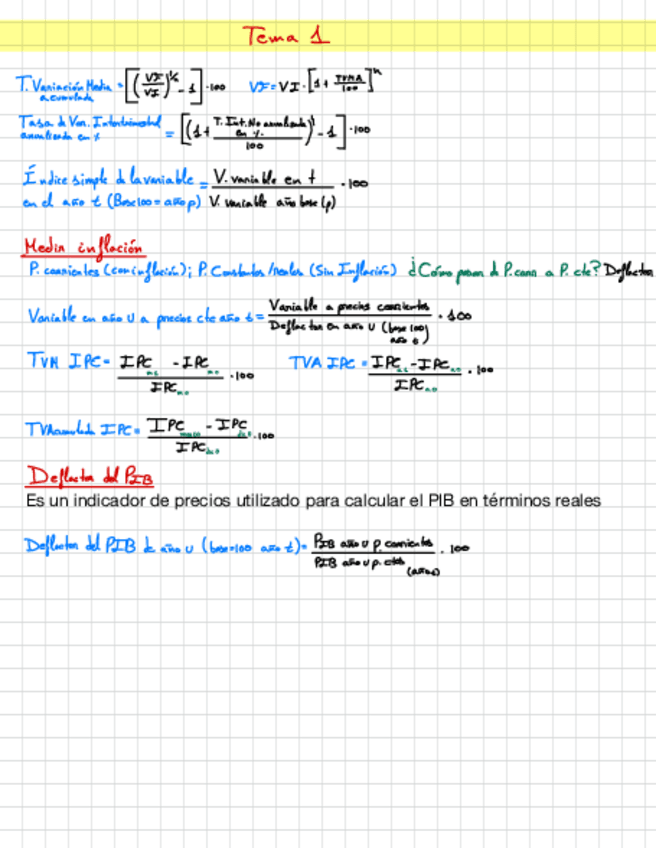 Tema 1
T. Variación Media acumulada = [(VF/VI)^(1/n) - 1] · 100 VF = VI · [1 + TVMA/100]^n
Tasa de Var. Intertrimestral anualizada en % = [(1 + T. Int. No anualizada en %/100) - 1] · 100
Índice simple d la variable en el año t (Base 100 = año p) = V. variable en t / V. variable año base (p) · 100
Medir inflación
P. corrientes (con inflación); P. Constantes/reales (Sin Inflación) ¿Cómo pasan d P. corr a P. cte? Deflactor
Variable en año u a precios cte año t = Variable a precios corrientes / Deflactor en año u (base 100 año t) · 100
TVM IPC = IPC - IPC / IPC · 100 TVA IPC = IPC - IPC / IPC · 100
TVAcumulada IPC = IPC - IPC / IPC · 100
Deflactor del PIB
Es un indicador de precios utilizado para calcular el PIB en términos reales
Deflactor del PIB de año u (base=100 año t) = PIB año u p. corrientes / PIB año u p. ctes (año t) · 100